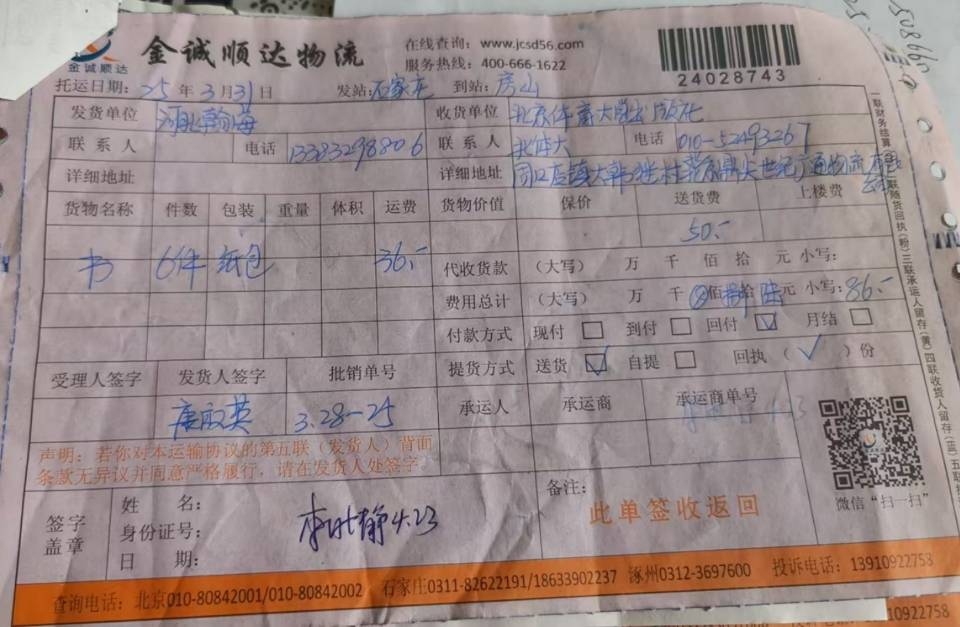 金诚顺达
金诚顺达物流
在线查询：www.jcsd56.com
服务热线：400-666-1622
24028743
托运日期：25 年 3 月 31 日 发站：石家庄 到站：房山
发货单位 河北瀚海 收货单位 北京体育大学出版社
联系人 电话 13383298806 联系人 北体大 电话 010-52493267
详细地址 详细地址
货物名称 件数 包装 重量 体积 运费 货物价值 保价 送货费 上楼费
50.-
书 6件 纸包 36.- 代收货款 （大写） 万 千 佰 拾 元 小写：
费用总计 （大写） 万 千 佰 捌拾 陆元 小写：86.-
付款方式 现付 到付 回付 ✓ 月结
提货方式 送货 ✓ 自提 回执（ ✓ ）份
受理人签字 发货人签字 批销单号 承运人 承运商 承运商单号
3.28-25
声明：若你对本运输协议的第五联（发货人）背面
条款无异议并同意严格履行，请在发货人处签字。
签字
盖章
姓 名：
身份证号：
日 期：
4.23
备注：
此单签收返回
微信“扫一扫”
查询电话：北京010-80842001/010-80842002 石家庄0311-82622191/18633902237 涿州0312-3697600 投诉电话：13910922758
10922758